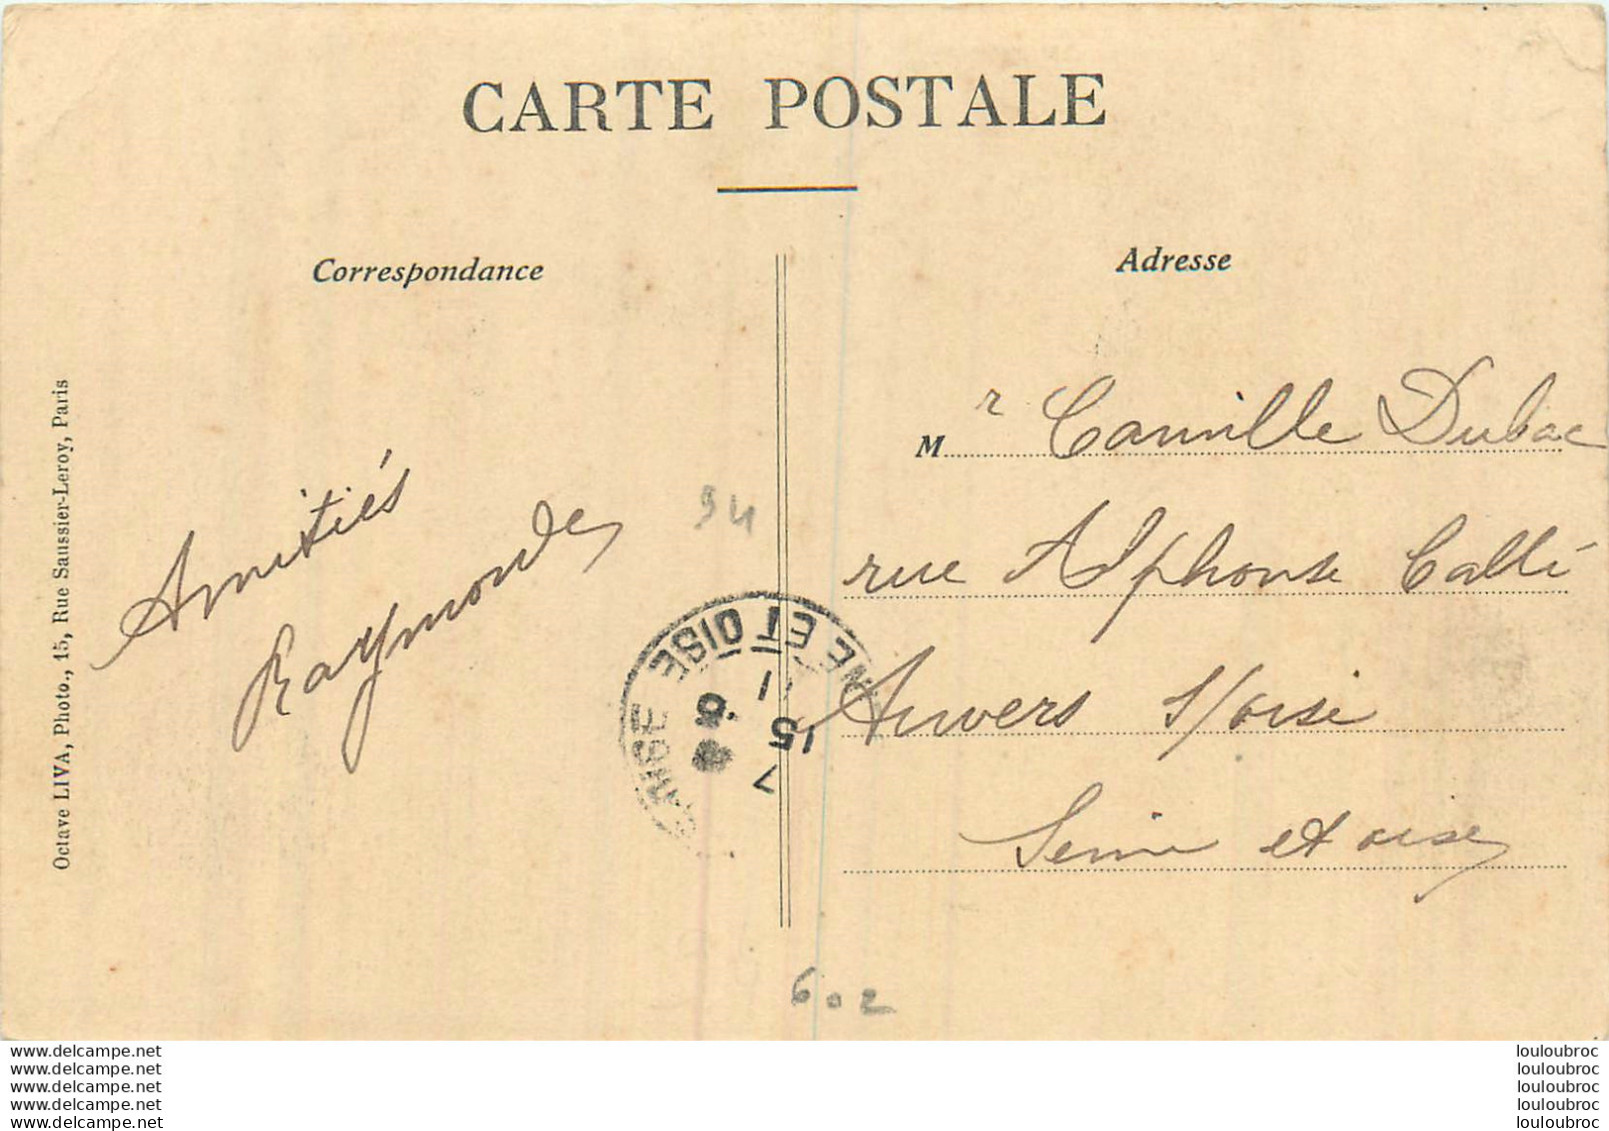 CARTE POSTALE
Correspondance
Adresse
Octave LIVA, Photo., 15, Rue Saussier-Leroy, Paris
Amitiés
Raymonde
94
M r Camille Dubac
rue Alphonse Callé
Anvers s/oise
Seine et oise
NE ET OISE
15
7
602
www.delcampe.net
www.delcampe.net
www.delcampe.net
www.delcampe.net
www.delcampe.net
louloubroc
louloubroc
louloubroc
louloubroc
louloubroc